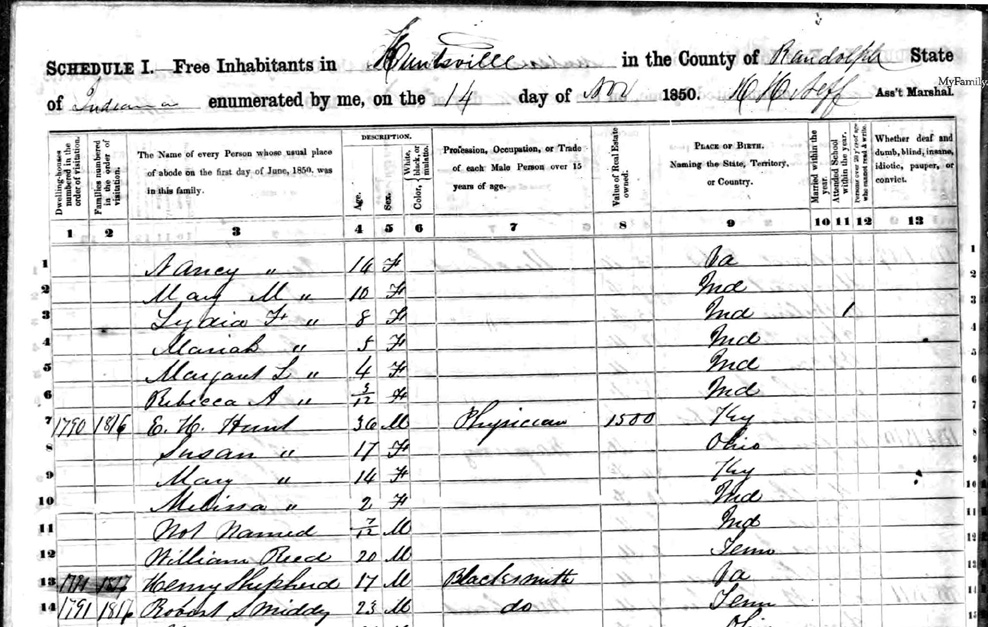 SCHEDULE I.—Free Inhabitants in Huntsville in the County of Randolph State
MyFamily.
of Indiana enumerated by me, on the 14 day of Nov 1850. H H Neff Ass't Marshal.
Dwelling-houses numbered in the order of visitation.
Families numbered in the order of visitation.
The Name of every Person whose usual place of abode on the first day of June, 1850, was in this family.
DESCRIPTION.
Age.
Sex.
Color, White, black, or mulatto.
Profession, Occupation, or Trade of each Male Person over 15 years of age.
Value of Real Estate owned.
PLACE OF BIRTH. Naming the State, Territory, or Country.
Married within the year.
Attended School within the year.
Persons over 20 y'rs of age who cannot read & write.
Whether deaf and dumb, blind, insane, idiotic, pauper, or convict.
1 2 3 4 5 6 7 8 9 10 11 12 13
1 Nancy " 14 F Va 1
2 Mary M " 10 F Ind 2
3 Lydia F " 8 F Ind 1 3
4 Mariah " 5 F Ind 4
5 Margaret L " 4 F Ind 5
6 Rebecca A " F Ind 6
7 1790 1816 E. H. Hunt 36 M Physician 1500 Ky 7
8 Susan " 17 F Ohio 8
9 Mary " 14 F Ky 9
10 Melissa " 2 F Ind 10
11 Not Named 7/12 M Ind 11
12 William Reed 20 M Tenn 12
13 1791 1817 Henry Shepherd 17 M Blacksmith Va
14 1791 1816 Robert Smiddy 23 M do Tenn